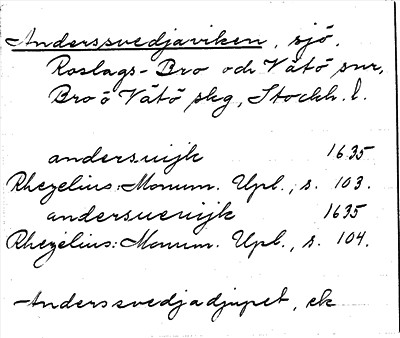 Anderssvedjaviken, sjö.
Roslags-Bro och Vätö snr,
Bro o Vätö skg, Stockh. l.
andersuijk 1635
Rhezelius: Monum. Upl., s. 103.
andersuenijk 1635
Rhezelius: Monum. Upl., s. 104.
Anderssvedjadjupet, ek